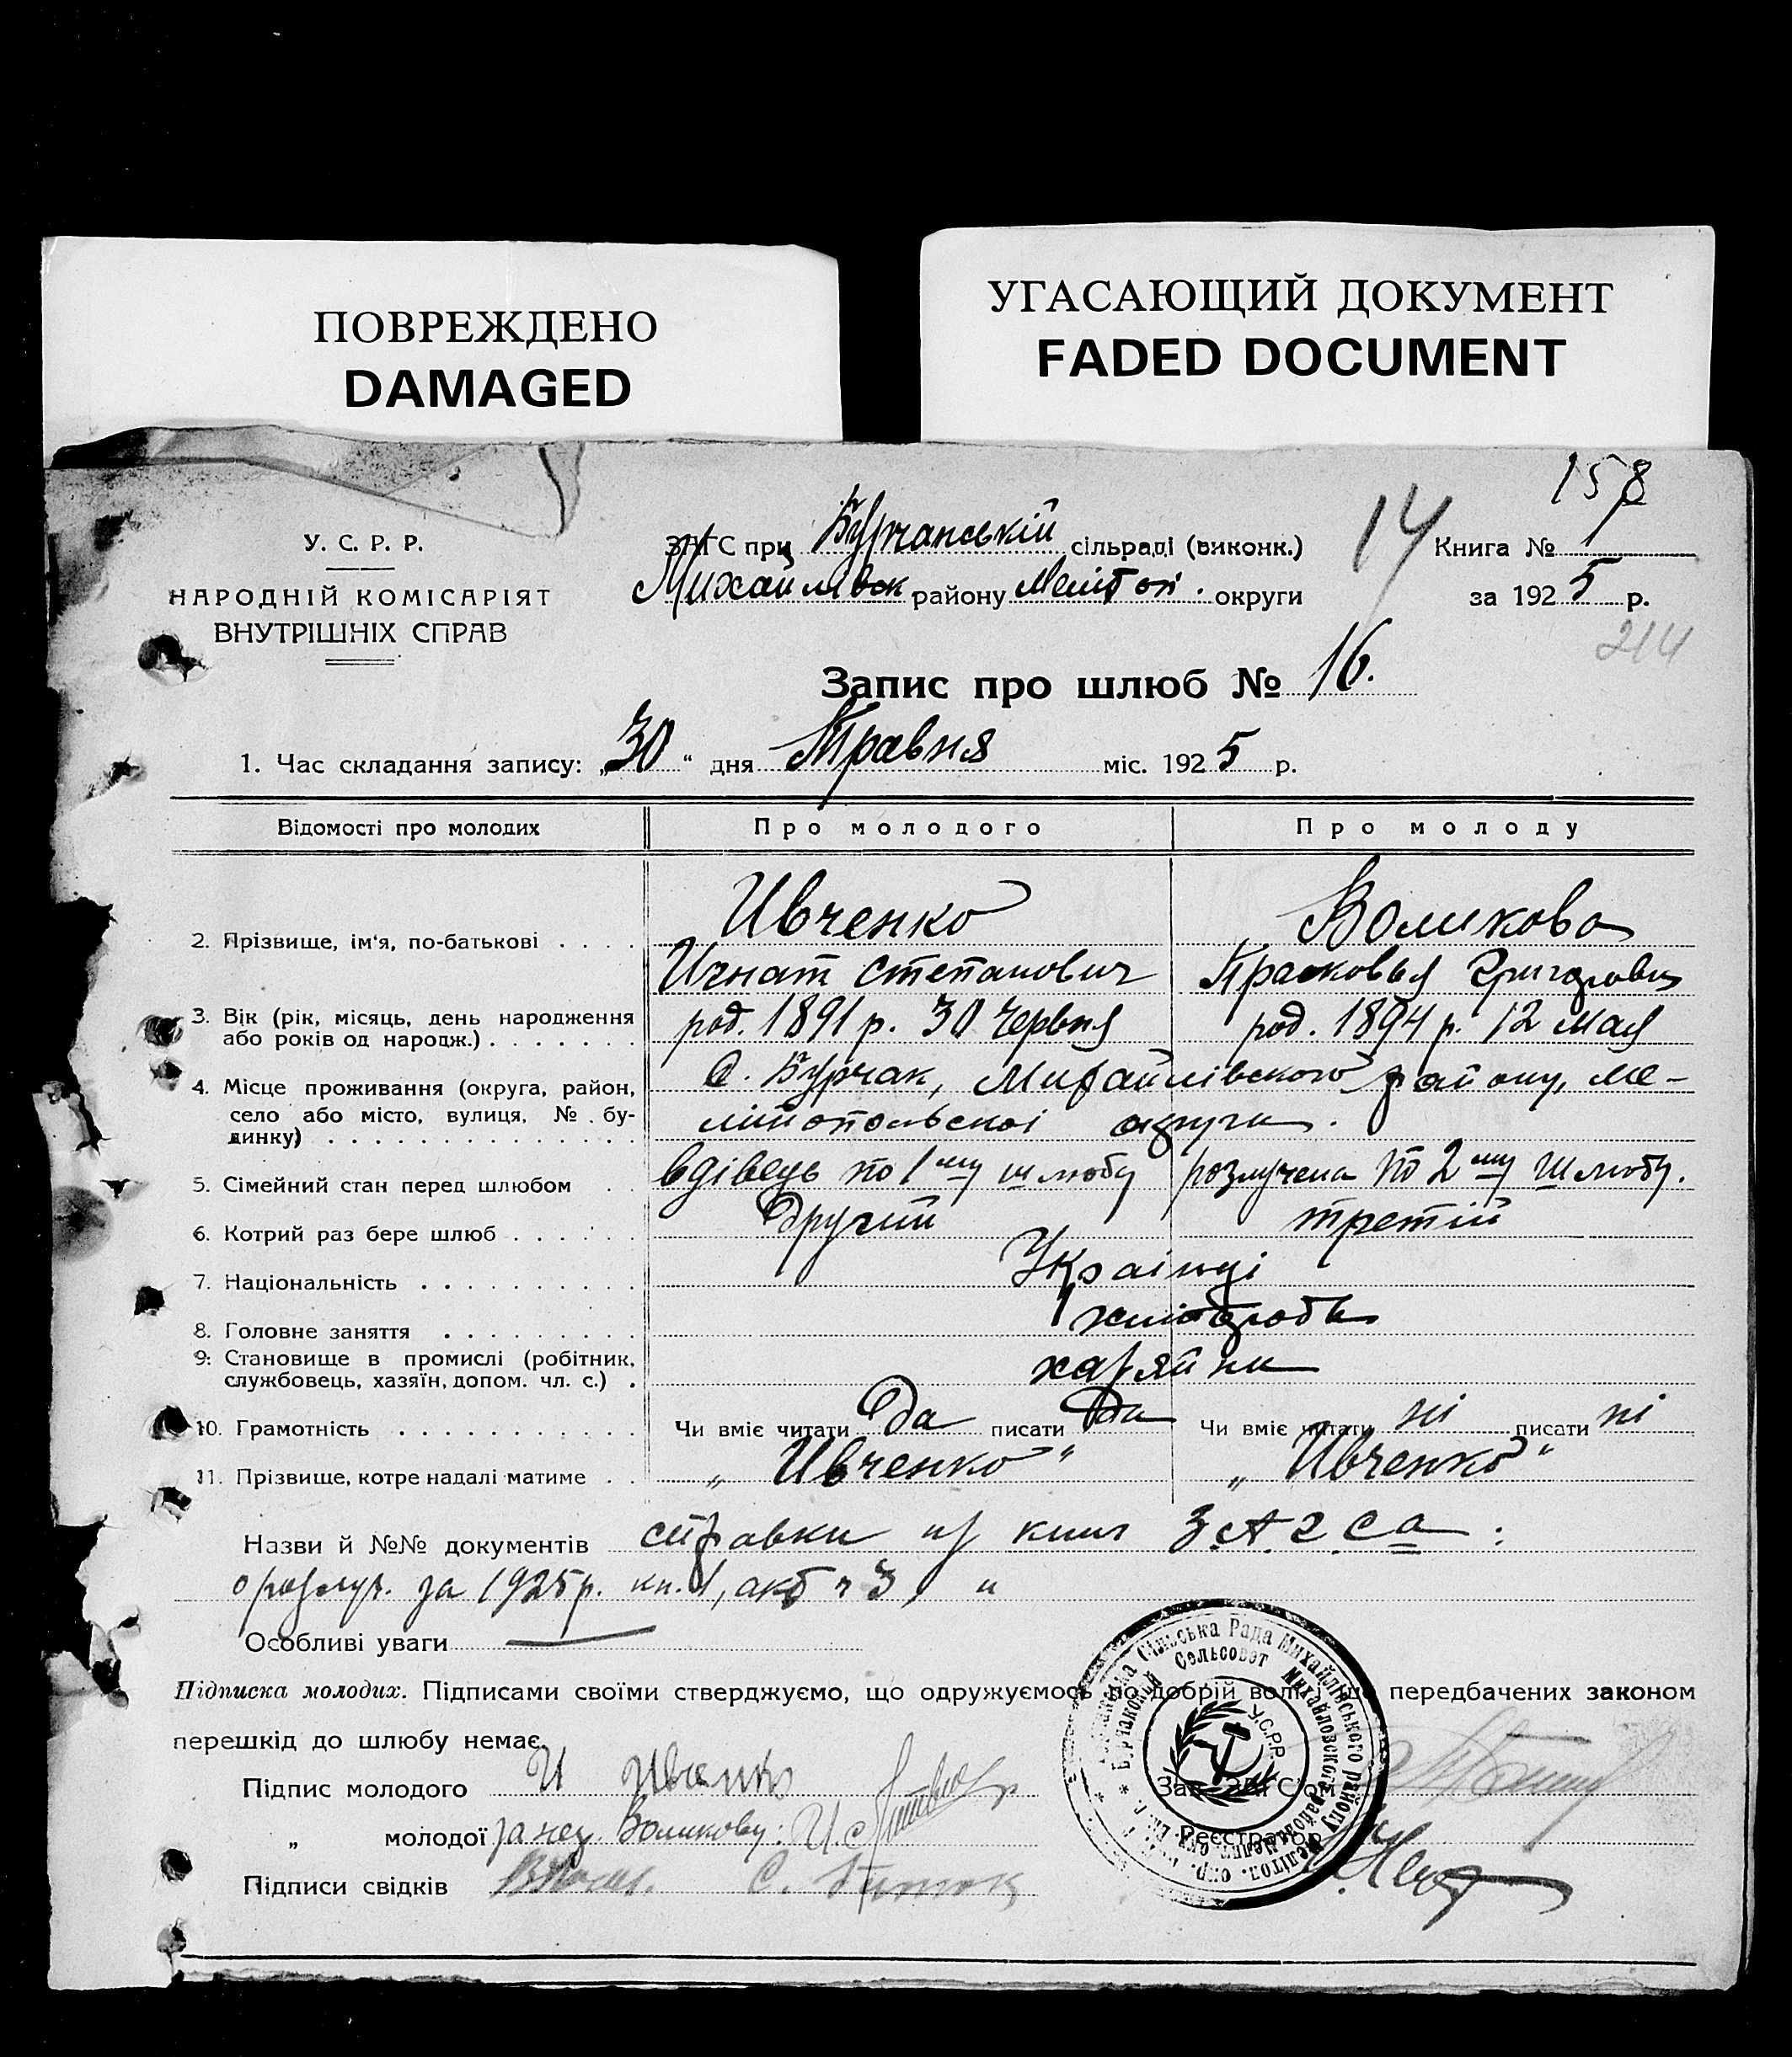 ПОВРЕЖДЕНО
DAMAGED
УГАСАЮЩИЙ ДОКУМЕНТ
FADED DOCUMENT
158
У. С. Р. Р.
НАРОДНІЙ КОМІСАРІЯТ
ВНУТРІШНІХ СПРАВ
ЗАГС при Бурчанській сільраді (виконк.)
Михайлівск району Меліtоп. округи
14
Книга № 1
за 1925 р.
214
Запис про шлюб № 16.
1. Час складання запису: „30“ дня Травня міс. 1925 р.
Відомості про молодих Про молодого Про молоду
Ивченко Воликова
2. Прізвище, ім'я, по-батькові . . . . Игнат Степанович Прасковья Григоровн
3. Вік (рік, місяць, день народження або років од народж.) . . . . . . . род. 1891 р. 30 Червня род. 1894 р. 12 мая
4. Місце проживання (округа, район, село або місто, вулиця, № будинку) С. Бурчак, Михайлівского району, Ме-
літопольскоі округи.
5. Сімейний стан перед шлюбом . . вдівець по 1му шлюбу розлучена по 2му шлюбу.
6. Котрий раз бере шлюб . . . . . . Другий третій
7. Національність . . . . . . . . . . Украінці
8. Головне заняття . . . . . . . . . хліборобы
9. Становище в промислі (робітник, службовець, хазяїн, допом. чл. с.) . хазяйни
10. Грамотність . . . . . . . . . . . Чи вміє читати Да писати Да Чи вміє читати ні писати ні
11. Прізвище, котре надалі матиме . . „Ивченко“ „Ивченко“
Назви й №№ документів справки из книг З.А.Г.С.а:
о розлуч. за 1925 р. кн. 1, акт № 3
Особливі уваги
Підписка молодих. Підписами своїми стверджуємо, що одружуємось по добрій волі, що передбачених законом
перешкід до шлюбу немає.
Підпис молодого И Ивченко
„ молодої за нец. Воликову:
Підписи свідків С.
Зав. ЗАГС'ом
Реєстратор
Сільська Рада Михайлівського району Меліtоп. окр.
Бурчакский Сельсовет Михайловского района
У.С.Р.Р.